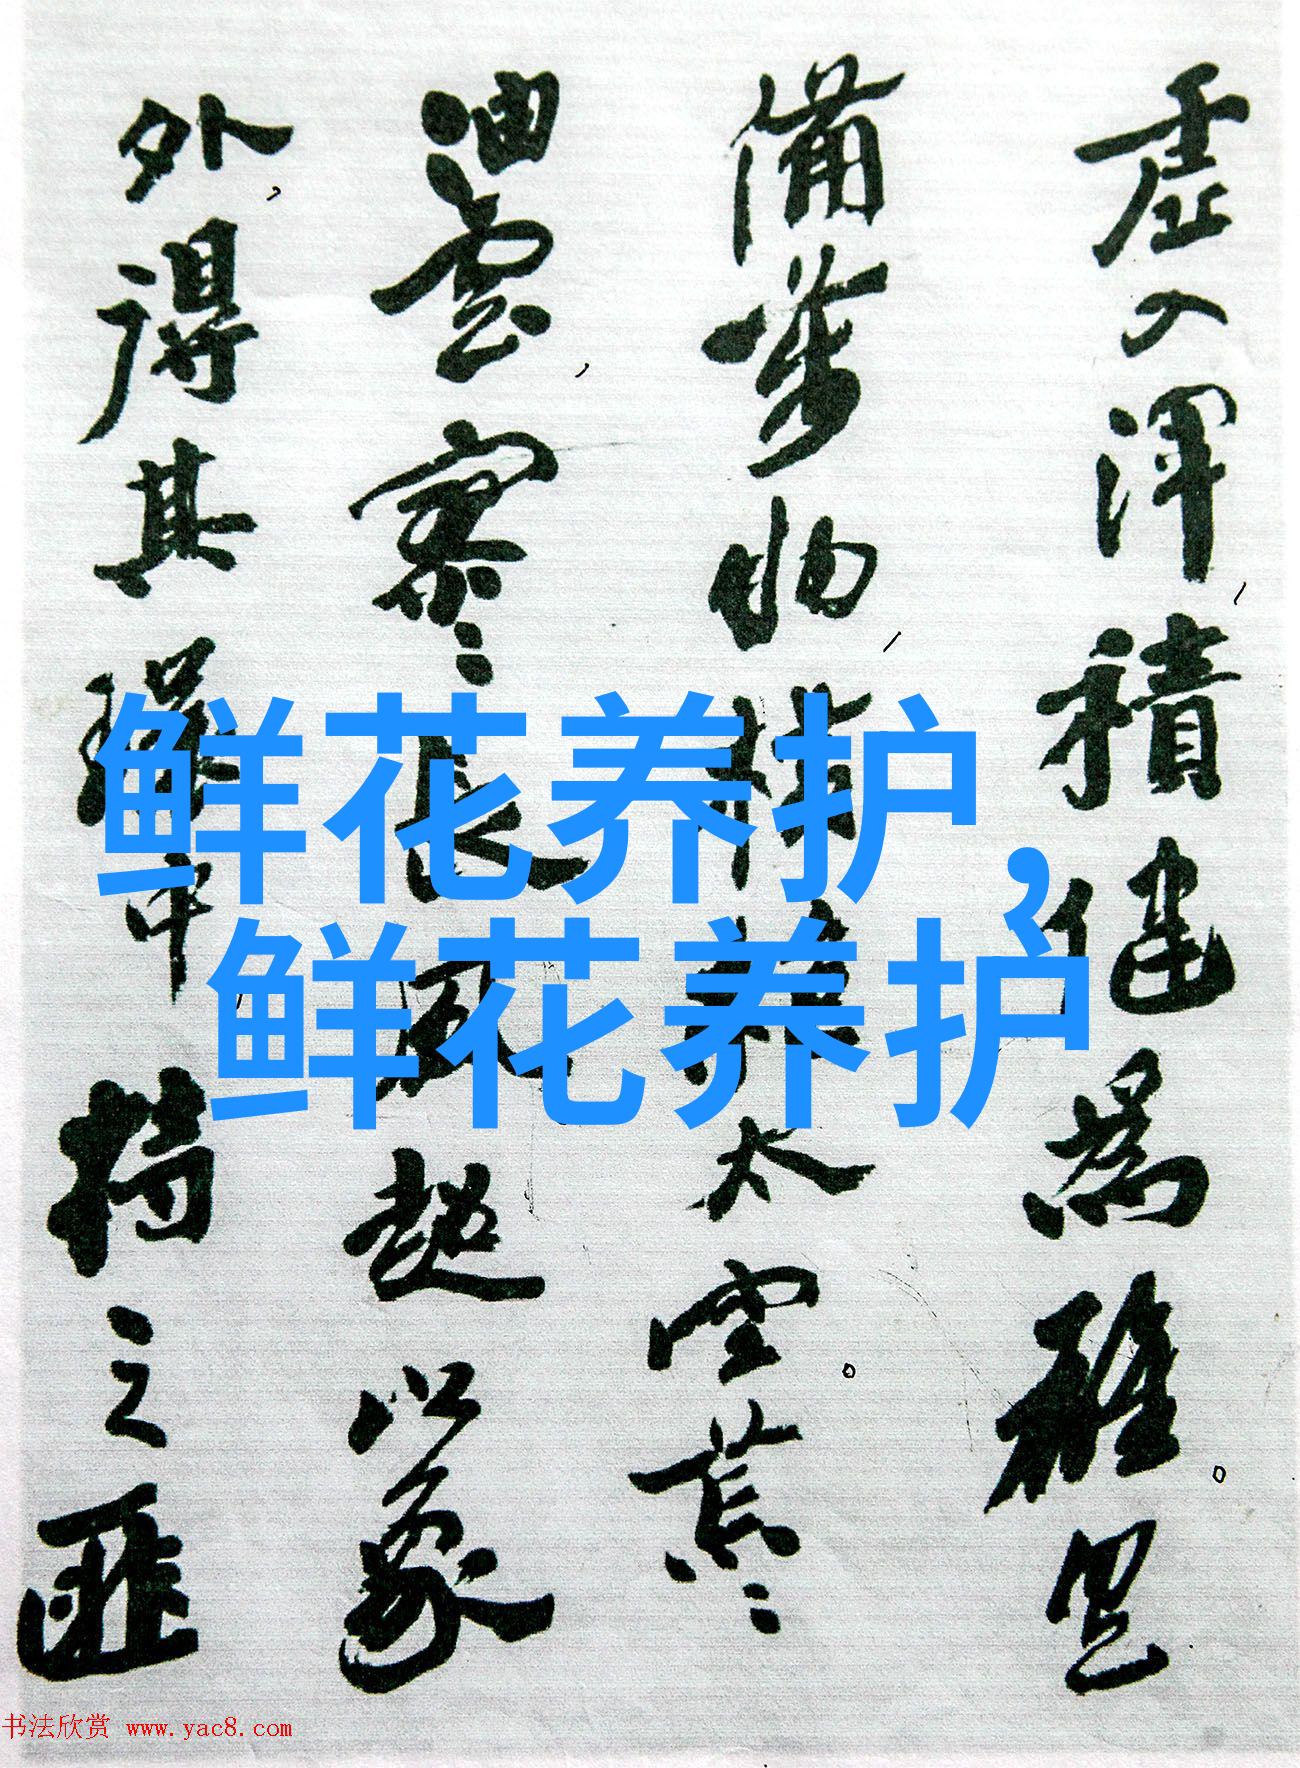 虚入渾，積健為雄。具
備萬物，橫絕太空。荒々
油雲，寥々長風超以象
外，得其環中，持之匪
鲜花养护，
鲜花养护
书法欣赏 www.yac8.com